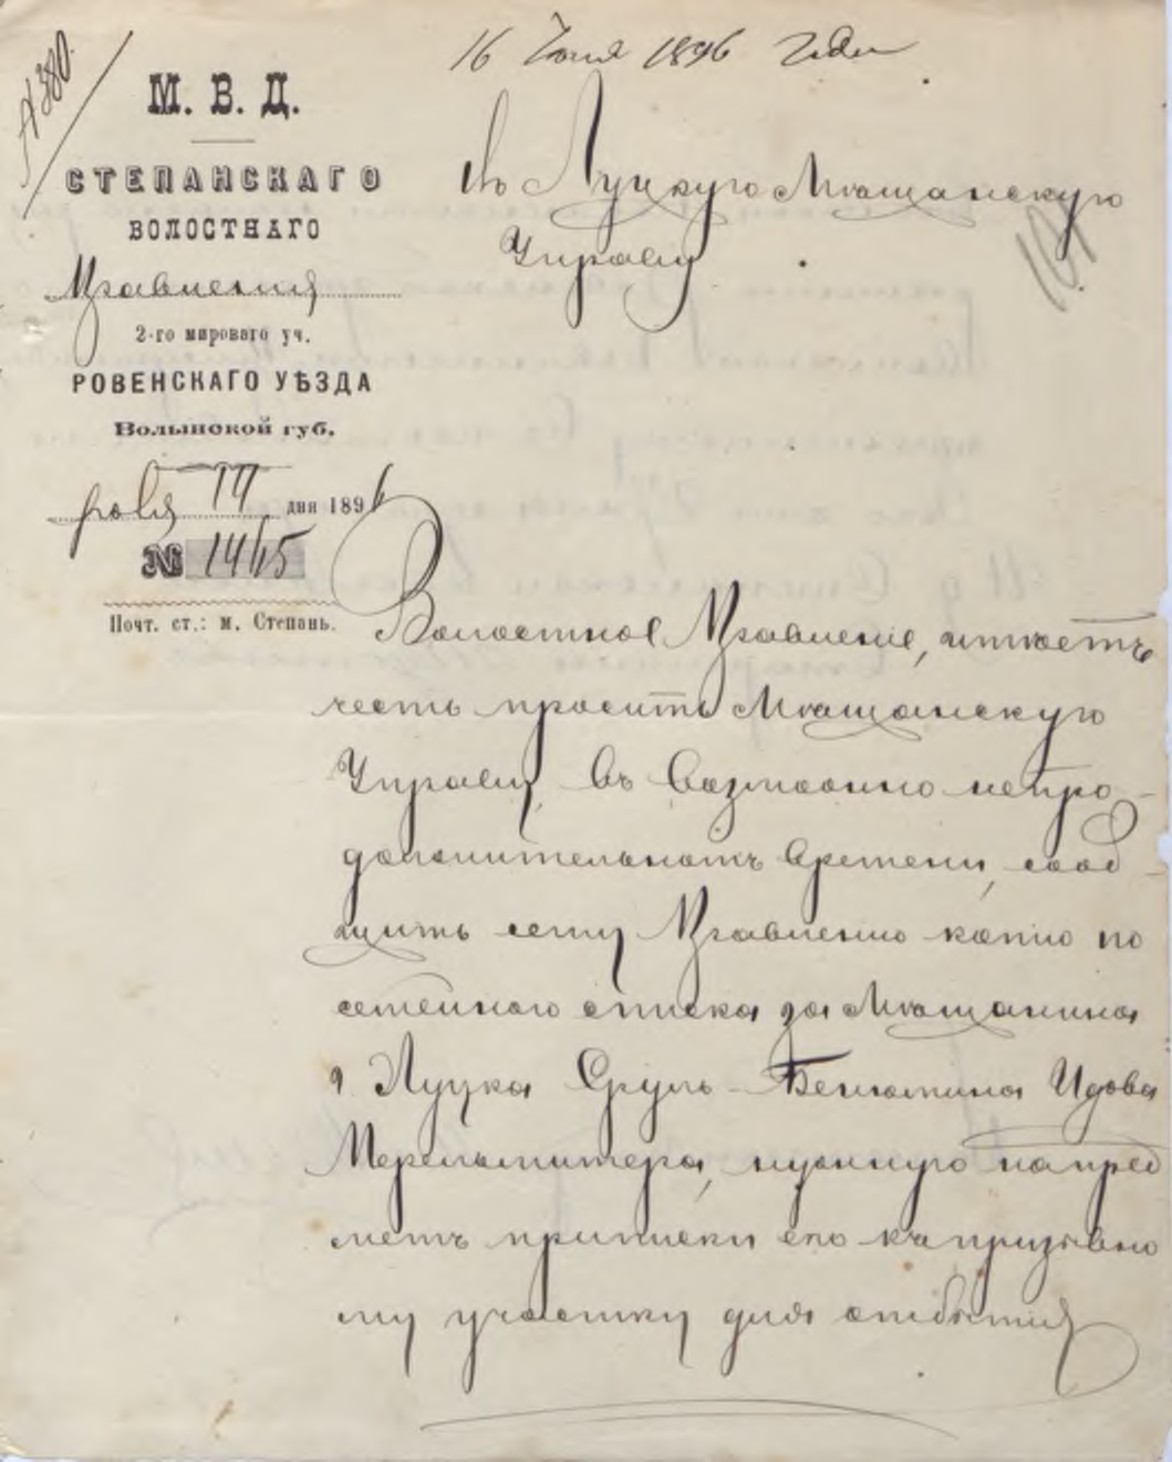 16 Іюня 1896 года
№ 380
М. В. Д.
СТЕПАНСКАГО
ВОЛОСТНАГО
Правленія
2-го мироваго уч.
РОВЕНСКАГО УѢЗДА
Волынской губ.
дня 1896
№ 1415
Почт. ст.: м. Степань.
Въ Луцкую Мѣщанскую
Управу
Волостное Правленіе, имѣетъ
честь просить Мѣщанскую
Управу, въ возможно непро-
должительномъ времени, сооб-
щить сему Правленію копію по
семейнаго списка за Мѣщанина
г. Луцка Сруль-Беніомина
Мерельмитера, нужную на пред
метъ приписки его къ призывно
му участку для отбытія